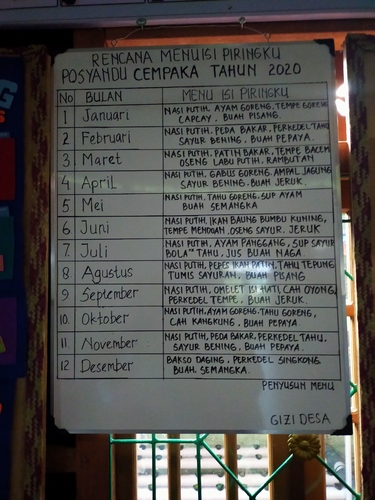 RENCANA MENU ISI PIRINGKU
POSYANDU CEMPAKA TAHUN 2020
No BULAN MENU ISI PIRINGKU
1 Januari NASI PUTIH, AYAM GORENG, TEMPE GORENG
CAPCAY, BUAH PISANG.
2 Februari NASI PUTIH, PEDA BAKAR, PERKEDEL TAHU
SAYUR BENING, BUAH PEPAYA.
3 Maret NASI PUTIH, PATIN BAKAR, TEMPE BACEM
OSENG LABU PUTIH, RAMBUTAN
4 April NASI PUTIH, GABUS GORENG, AMPAL JAGUNG
SAYUR BENING, BUAH JERUK.
5 Mei NASI PUTIH, TAHU GORENG, SUP AYAM
BUAH SEMANGKA
6 Juni NASI PUTIH, IKAN BAUNG BUMBU KUNING,
TEMPE MENDOAN, OSENG SAYUR. JERUK
7. Juli NASI PUTIH, AYAM PANGGANG, SUP SAYUR
BOLA" TAHU, JUS BUAH NAGA
8 Agustus NASI PUTIH, PEPES IKAN PATIN, TAHU TEPUNG
TUMIS SAYURAN, BUAH PISANG
9 September NASI PUTIH, OMELET ISI HATI, CAH OYONG,
PERKEDEL TEMPE, BUAH JERUK.
10. Oktober NASI PUTIH, AYAM GORENG, TAHU GORENG,
CAH KANGKUNG, BUAH PEPAYA.
11 November NASI PUTIH, PEDA BAKAR, PERKEDEL TAHU,
SAYUR BENING, BUAH PEPAYA.
12 Desember BAKSO DAGING, PERKEDEL SINGKONG
BUAH SEMANGKA.
PENYUSUN MENU
GIZI DESA